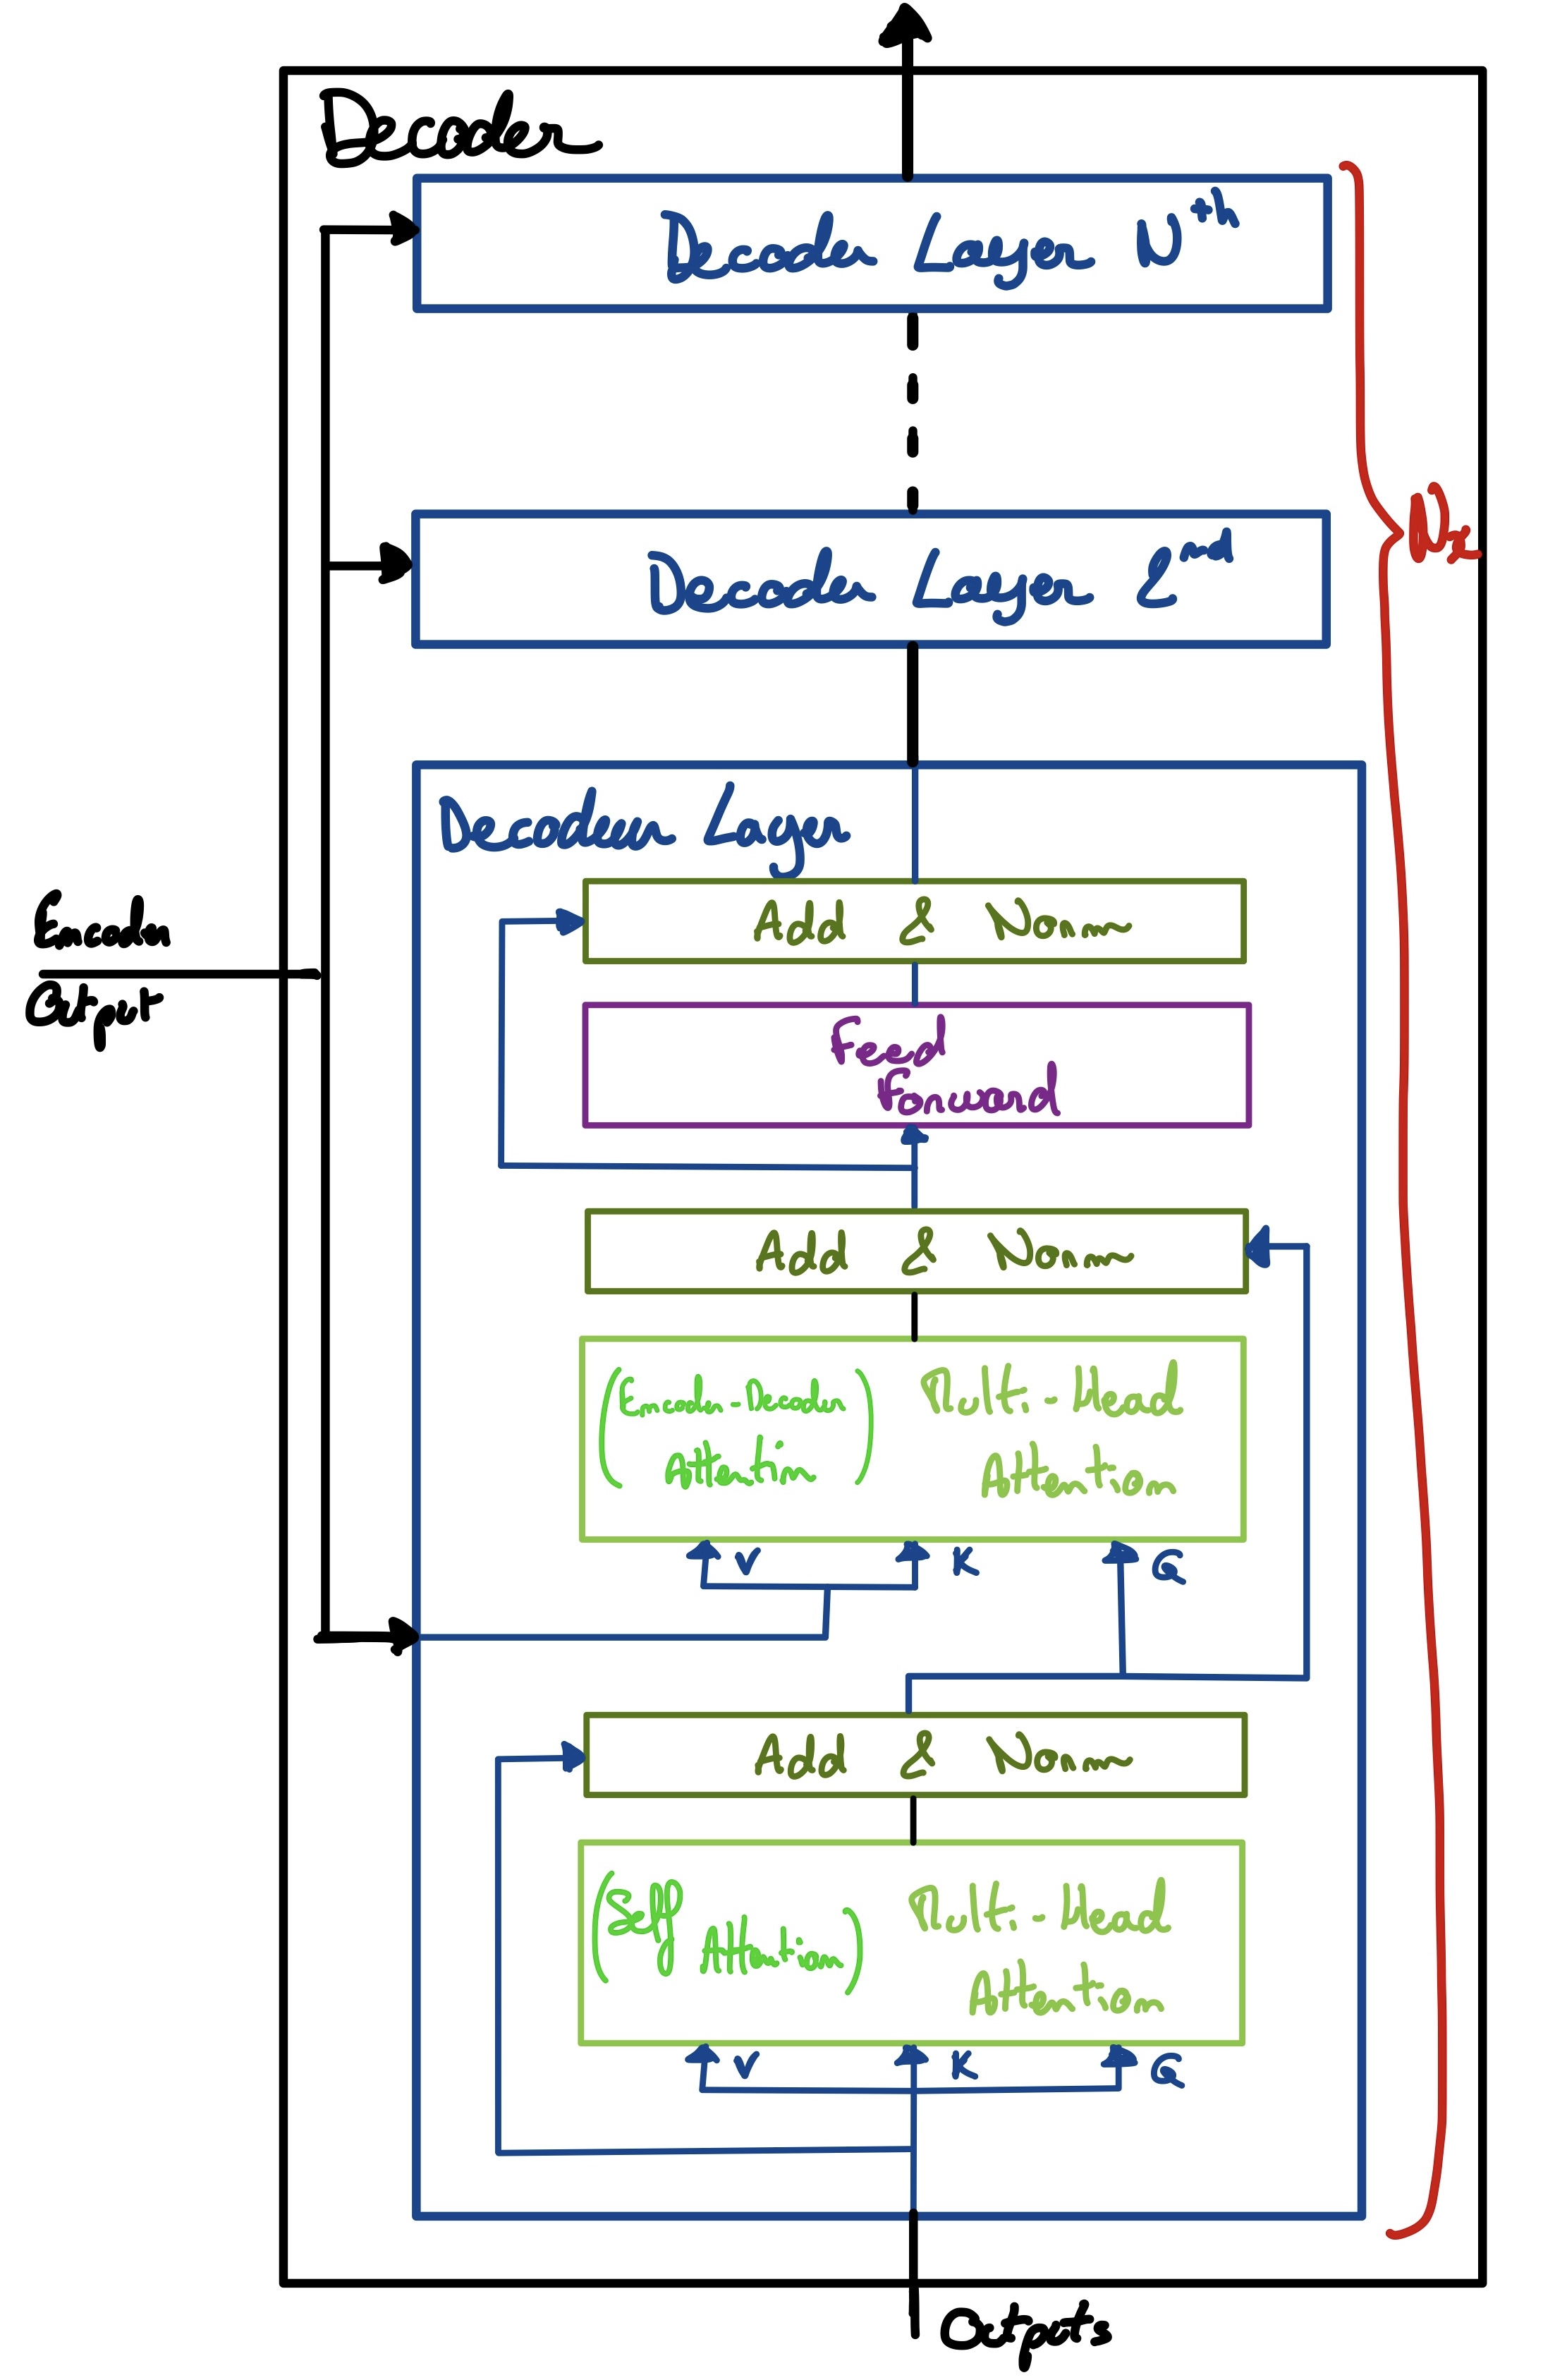 Decoder
Decoder Layer Nth
Decoder Layer 2nd
Nx
Decoder Layer
Add & Norm
Encoder
Output
Feed
Forward
Add & Norm
(Encoder-Decoder Attention)
Multi-Head
Attention
V K Q
Add & Norm
(Self Attention)
Multi-Head
Attention
V K Q
Outputs